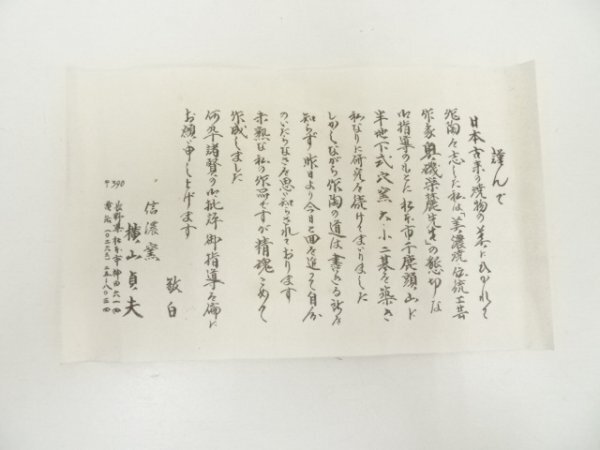 謹んで
日本古来の焼物の美にひかれて
作陶を志した私は「美濃焼伝統工芸
作家奥磯栄麓先生」の懇切な
御指導のもとに松本市千鹿頭山に
半地下式穴窯大小二基を築き
私なりに研究を続けてまいりました
しかしながら作陶の道は
知らず昨日より今日と回を追って自分
のいたらなさを思い知らされております
未熟な私の作品ですが精魂こめて
作成しました
何卒諸賢の御批評御指導を
お願い申し上げます
敬白
信濃窯
横山貞夫
〒390
長野県松本市
電話(〇二六三)